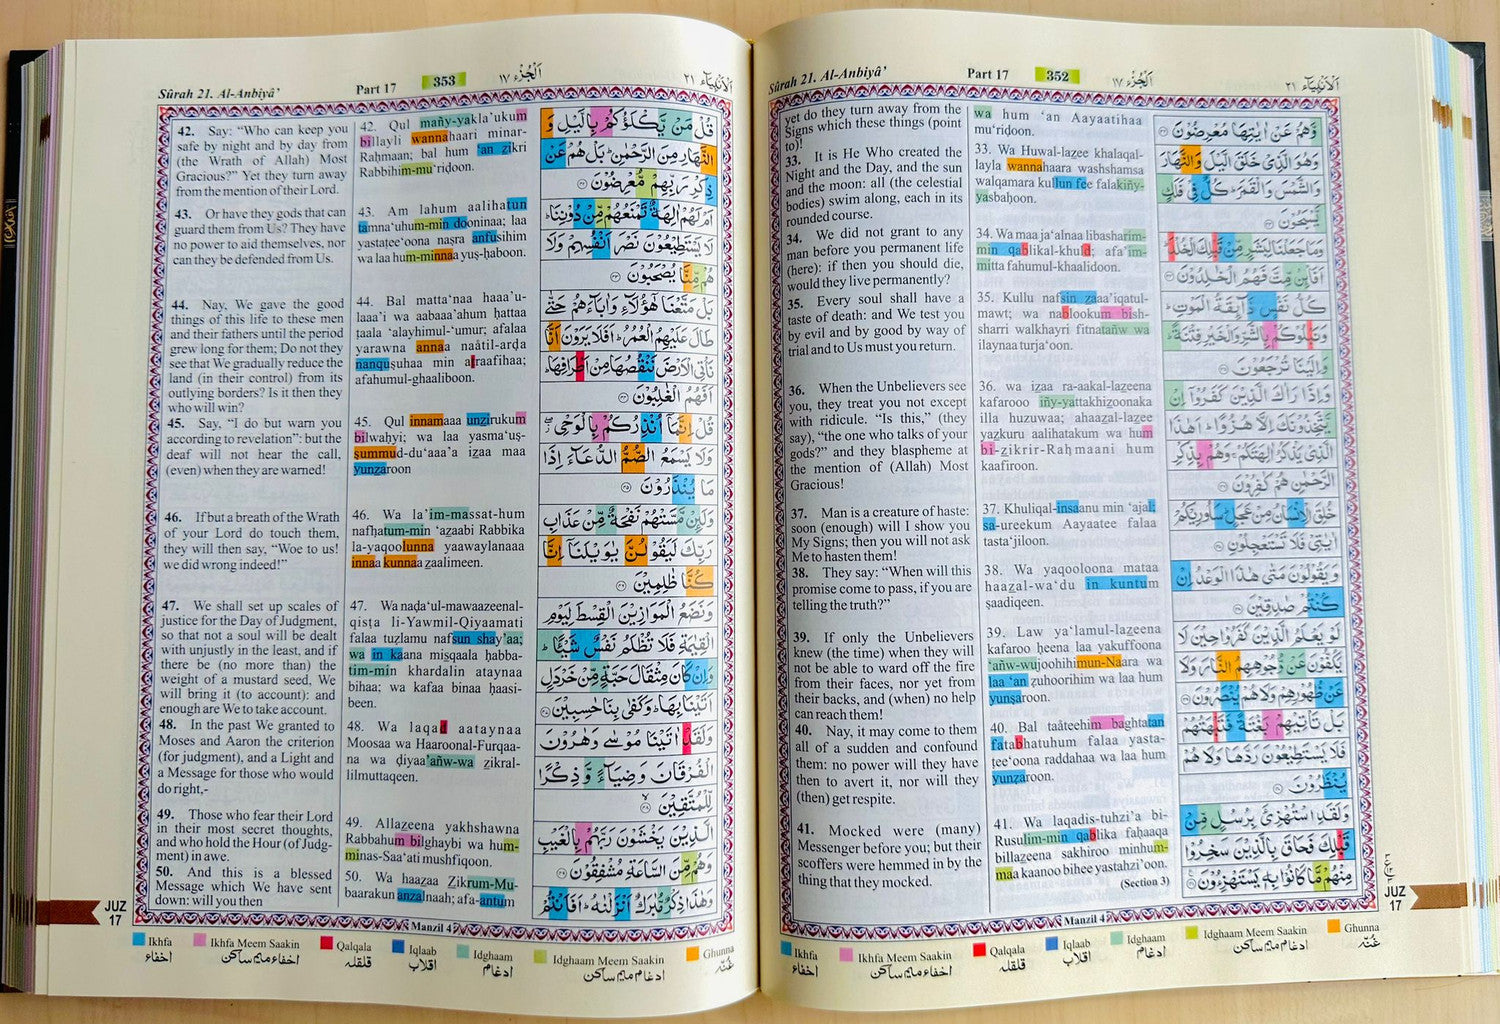 Sûrah 21. Al-Anbiyâ’
Part 17
352
اَلْجُزْء ١٧
اَلْاَنْبِيَآء ٢١
yet do they turn away from the
Signs which these things (point
to)!
33. It is He Who created the
Night and the Day, and the sun
and the moon: all (the celestial
bodies) swim along, each in its
rounded course.
34. We did not grant to any
man before you permanent life
(here): if then you should die,
would they live permanently?
35. Every soul shall have a
taste of death: and We test you
by evil and by good by way of
trial and to Us must you return.
36. When the Unbelievers see
you, they treat you not except
with ridicule. “Is this,” (they
say), “the one who talks of your
gods?” and they blaspheme at
the mention of (Allah) Most
Gracious!
37. Man is a creature of haste:
soon (enough) will I show you
My Signs; then you will not ask
Me to hasten them!
38. They say: “When will this
promise come to pass, if you are
telling the truth?”
39. If only the Unbelievers
knew (the time) when they will
not be able to ward off the fire
from their faces, nor yet from
their backs, and (when) no help
can reach them!
40. Nay, it may come to them
all of a sudden and confound
them: no power will they have
then to avert it, nor will they
(then) get respite.
41. Mocked were (many)
Messenger before you; but their
scoffers were hemmed in by the
thing that they mocked.
wa hum ‘an Aayaatihaa
mu‘riḍoon.
33. Wa Huwal-lazee khalaqal-
layla wannahaara washshamsa
walqamara kullun fee falakiñy-
yasbaḥoon.
34. Wa maa ja‘alnaa libasharim-
min qablikal-khuld; afa’im-
mitta fahumul-khaalidoon.
35. Kullu nafsin zaaa’iqatul-
mawt; wa nablookum bish-
sharri walkhayri fitnatañw wa
ilaynaa turja‘oon.
36. wa izaa ra-aakal-lazeena
kafarooo iñy-yattakhizoonaka
illa huzuwaa; ahaazal-lazee
yazkuru aalihatakum wa hum
bi-zikrir-Raḥmaani hum
kaafiroon.
37. Khuliqal-insaanu min ‘ajal;
sa-ureekum Aayaatee falaa
tasta‘jiloon.
38. Wa yaqooloona mataa
haazal-wa‘du in kuntum
ṣaadiqeen.
39. Law ya‘lamul-lazeena
kafaroo ḥeena laa yakuffoona
‘añw-wujoohihimun-Naara wa
laa ‘an ẓuhoorihim wa laa hum
yunṣaroon.
40. Bal taâteehim baghtatan
fatabhatuhum falaa yasta-
ṭee‘oona raddahaa wa laa hum
yunẓaroon.
41. Wa laqadis-tuhzi’a bi-
Rusulim-min qablika faḥaaqa
billazeena sakhiroo minhum-
maa kaanoo bihee yastahzi’oon.
(Section 3)
وَّهُمْ عَنْ اٰيٰتِهَا مُعْرِضُوْنَ ۝٣٢
وَهُوَ الَّذِىْ خَلَقَ الَّيْلَ وَالنَّهَارَ
وَالشَّمْسَ وَالْقَمَرَ ؕ كُلٌّ فِىْ فَلَكٍ
يَّسْبَحُوْنَ ۝٣٣
وَمَا جَعَلْنَا لِبَشَرٍ مِّنْ قَبْلِكَ الْخُلْدَ ؕ
اَفَا۟ئِنْ مِّتَّ فَهُمُ الْخٰلِدُوْنَ ۝٣٤
كُلُّ نَفْسٍ ذَآئِقَةُ الْمَوْتِ ؕ
وَنَبْلُوْكُمْ بِالشَّرِّ وَالْخَيْرِ فِتْنَةً ؕ
وَاِلَيْنَا تُرْجَعُوْنَ ۝٣٥
وَاِذَا رَاٰكَ الَّذِيْنَ كَفَرُوْۤا اِنْ
يَّتَّخِذُوْنَكَ اِلَّا هُزُوًا ؕ اَهٰذَا
الَّذِىْ يَذْكُرُ اٰلِهَتَكُمْ ۚ وَهُمْ بِذِكْرِ
الرَّحْمٰنِ هُمْ كٰفِرُوْنَ ۝٣٦
خُلِقَ الْاِنْسَانُ مِنْ عَجَلٍ ؕ سَاُورِيْكُمْ
اٰيٰتِىْ فَلَا تَسْتَعْجِلُوْنِ ۝٣٧
وَيَقُوْلُوْنَ مَتٰى هٰذَا الْوَعْدُ اِنْ
كُنْتُمْ صٰدِقِيْنَ ۝٣٨
لَوْ يَعْلَمُ الَّذِيْنَ كَفَرُوْا حِيْنَ لَا
يَكُفُّوْنَ عَنْ وُّجُوْهِهِمُ النَّارَ وَلَا
عَنْ ظُهُوْرِهِمْ وَلَا هُمْ يُنْصَرُوْنَ ۝٣٩
بَلْ تَاْتِيْهِمْ بَغْتَةً فَتَبْهَتُهُمْ
فَلَا يَسْتَطِيْعُوْنَ رَدَّهَا وَلَا هُمْ
يُنْظَرُوْنَ ۝٤٠
وَلَقَدِ اسْتُهْزِئَ بِرُسُلٍ مِّنْ
قَبْلِكَ فَحَاقَ بِالَّذِيْنَ سَخِرُوْا
مِنْهُمْ مَّا كَانُوْا بِهٖ يَسْتَهْزِءُوْنَ ۝٤١
JUZ
17
Manzil 4
Ikhfa
اخفاء
Ikhfa Meem Saakin
اخفاء میم ساکن
Qalqala
قلقلہ
Iqlaab
اقلاب
Idghaam
ادغام
Idghaam Meem Saakin
ادغام میم ساکن
Ghunna
غنّہ
Sûrah 21. Al-Anbiyâ’
Part 17
353
اَلْجُزْء ١٧
اَلْاَنْبِيَآء ٢١
42. Say: “Who can keep you
safe by night and by day from
(the Wrath of Allah) Most
Gracious?” Yet they turn away
from the mention of their Lord.
43. Or have they gods that can
guard them from Us? They have
no power to aid themselves, nor
can they be defended from Us.
44. Nay, We gave the good
things of this life to these men
and their fathers until the period
grew long for them; Do not they
see that We gradually reduce the
land (in their control) from its
outlying borders? Is it then they
who will win?
45. Say, “I do but warn you
according to revelation”: but the
deaf will not hear the call,
(even) when they are warned!
46. If but a breath of the Wrath
of your Lord do touch them,
they will then say, “Woe to us!
we did wrong indeed!”
47. We shall set up scales of
justice for the Day of Judgment,
so that not a soul will be dealt
with unjustly in the least, and if
there be (no more than) the
weight of a mustard seed, We
will bring it (to account): and
enough are We to take account.
48. In the past We granted to
Moses and Aaron the criterion
(for judgment), and a Light and
a Message for those who would
do right,-
49. Those who fear their Lord
in their most secret thoughts,
and who hold the Hour (of Judg-
ment) in awe.
50. And this is a blessed
Message which We have sent
down: will you then
42. Qul mañy-yakla’ukum
billayli wannahaari minar-
Raḥmaan; bal hum ‘an zikri
Rabbihim-mu‘riḍoon.
43. Am lahum aalihatun
tamna‘uhum-min dooninaa; laa
yastaṭee‘oona naṣra anfusihim
wa laa hum-minnaa yuṣ-ḥaboon.
44. Bal matta‘naa haaa’u-
laaa’i wa aabaaa’ahum ḥattaa
ṭaala ‘alayhimul-‘umur; afalaa
yarawna annaa naâtil-arḍa
nanquṣuhaa min aṭraafihaa;
afahumul-ghaaliboon.
45. Qul innamaaa unzirukum
bilwaḥyi; wa laa yasma‘uṣ-
ṣummud-du‘aaa’a izaa maa
yunzaroon
46. Wa la’im-massat-hum
nafḥatum-min ‘azaabi Rabbika
la-yaqoolunna yaawaylanaaa
innaa kunnaa ẓaalimeen.
47. Wa naḍa‘ul-mawaazeenal-
qisṭa li-Yawmil-Qiyaamati
falaa tuẓlamu nafsun shay’aa;
wa in kaana misqaala ḥabba-
tim-min khardalin ataynaa
bihaa; wa kafaa binaa ḥaasi-
been.
48. Wa laqad aataynaa
Moosaa wa Haaroonal-Furqaa-
na wa ḍiyaa’añw-wa zikral-
lilmuttaqeen.
49. Allazeena yakhshawna
Rabbahum bilghaybi wa hum-
minas-Saa‘ati mushfiqoon.
50. Wa haazaa Zikrum-Mu-
baarakun anzalnaah; afa-antum
قُلْ مَنْ يَّكْلَؤُكُمْ بِالَّيْلِ وَ
النَّهَارِ مِنَ الرَّحْمٰنِ ؕ بَلْ هُمْ عَنْ
ذِكْرِ رَبِّهِمْ مُّعْرِضُوْنَ ۝٤٢
اَمْ لَهُمْ اٰلِهَةٌ تَمْنَعُهُمْ مِّنْ دُوْنِنَا ؕ
لَا يَسْتَطِيْعُوْنَ نَصْرَ اَنْفُسِهِمْ وَلَا
هُمْ مِّنَّا يُصْحَبُوْنَ ۝٤٣
بَلْ مَتَّعْنَا هٰٓؤُلَآءِ وَاٰبَآءَهُمْ حَتّٰى
طَالَ عَلَيْهِمُ الْعُمُرُ ؕ اَفَلَا يَرَوْنَ اَنَّا
نَاْتِى الْاَرْضَ نَنْقُصُهَا مِنْ اَطْرَافِهَا ؕ
اَفَهُمُ الْغٰلِبُوْنَ ۝٤٤
قُلْ اِنَّمَاۤ اُنْذِرُكُمْ بِالْوَحْىِ ۖ
وَلَا يَسْمَعُ الصُّمُّ الدُّعَآءَ اِذَا
مَا يُنْذَرُوْنَ ۝٤٥
وَلَئِنْ مَّسَّتْهُمْ نَفْحَةٌ مِّنْ عَذَابِ
رَبِّكَ لَيَقُوْلُنَّ يٰوَيْلَنَاۤ اِنَّا
كُنَّا ظٰلِمِيْنَ ۝٤٦
وَنَضَعُ الْمَوَازِيْنَ الْقِسْطَ لِيَوْمِ
الْقِيٰمَةِ فَلَا تُظْلَمُ نَفْسٌ شَيْئًا ؕ
وَاِنْ كَانَ مِثْقَالَ حَبَّةٍ مِّنْ خَرْدَلٍ
اَتَيْنَا بِهَا ؕ وَكَفٰى بِنَا حٰسِبِيْنَ ۝٤٧
وَلَقَدْ اٰتَيْنَا مُوْسٰى وَهٰرُوْنَ
الْفُرْقَانَ وَضِيَآءً وَّذِكْرًا
لِّلْمُتَّقِيْنَ ۝٤٨
الَّذِيْنَ يَخْشَوْنَ رَبَّهُمْ بِالْغَيْبِ
وَهُمْ مِّنَ السَّاعَةِ مُشْفِقُوْنَ ۝٤٩
وَهٰذَا ذِكْرٌ مُّبٰرَكٌ اَنْزَلْنٰهُ ؕ اَفَاَنْتُمْ
JUZ
17
Manzil 4
Ikhfa
اخفاء
Ikhfa Meem Saakin
اخفاء میم ساکن
Qalqala
قلقلہ
Iqlaab
اقلاب
Idghaam
ادغام
Idghaam Meem Saakin
ادغام میم ساکن
Ghunna
غنّہ